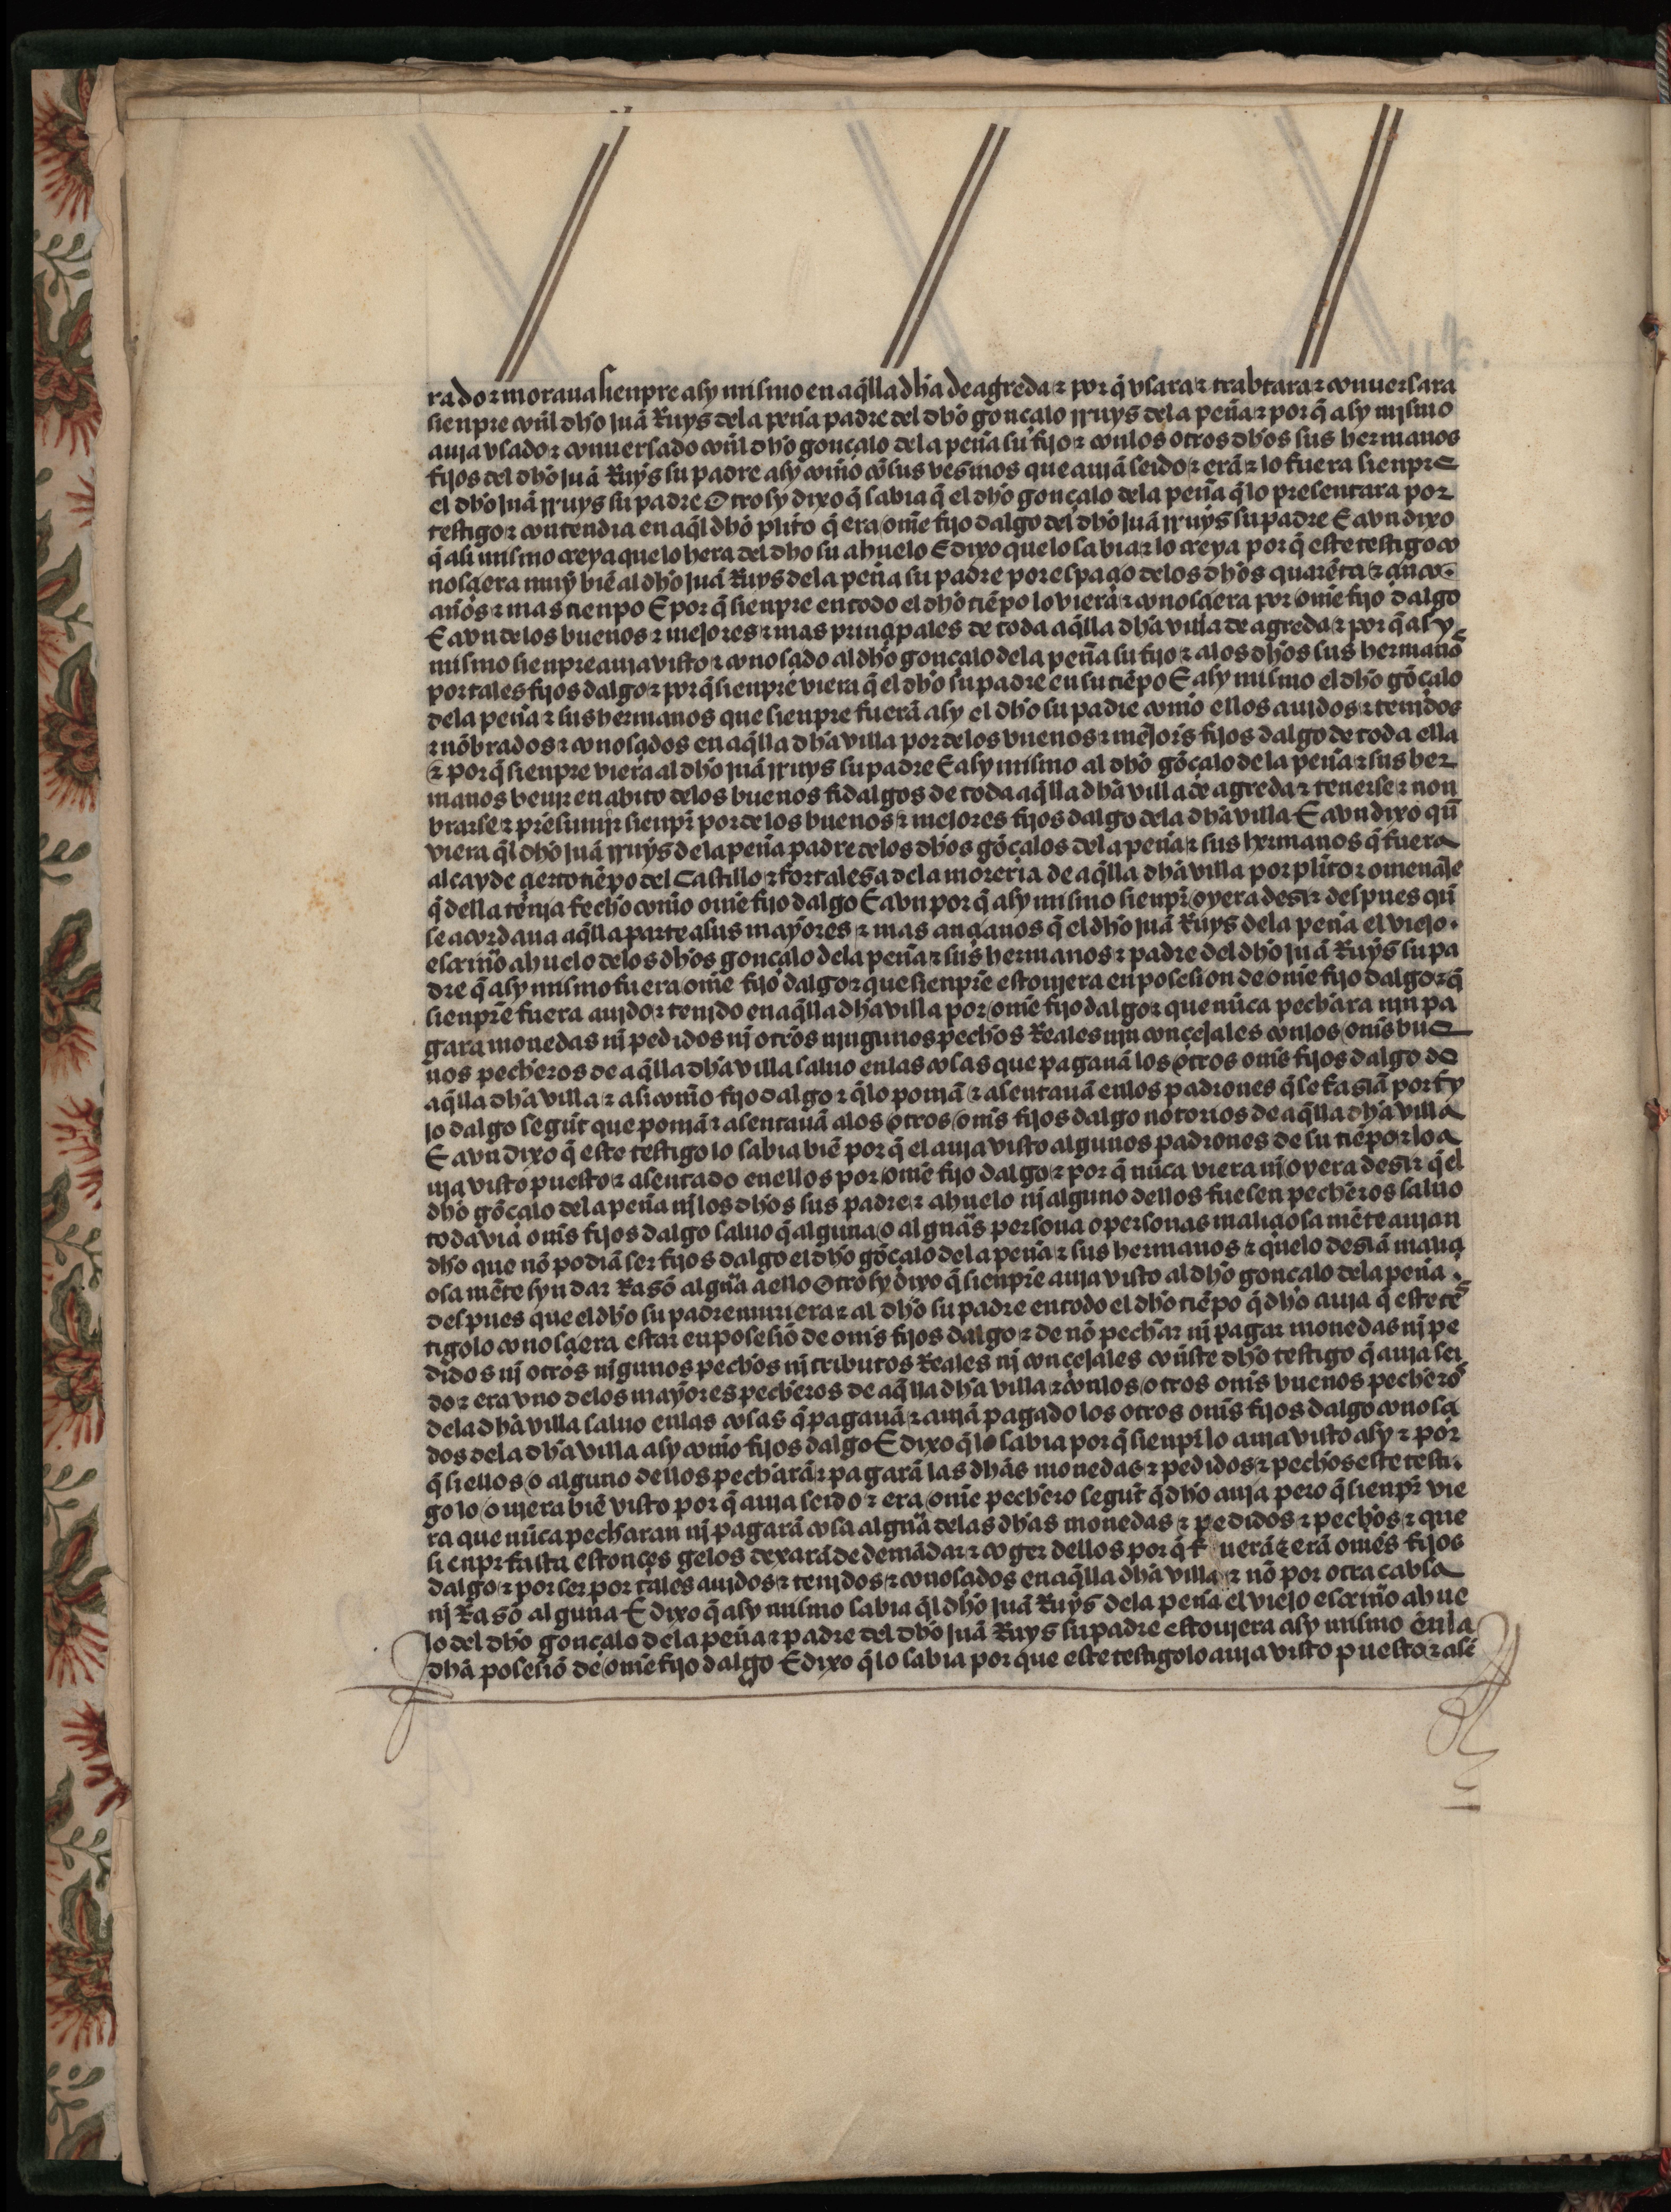 rado ⁊ moraua sienpre asy mismo en aq̃lla dha de agreda ⁊ por q̃ vsara ⁊ trabtara ⁊ conuersara
sienpre conl dho juã Ruys dela peña padre del dho gonçalo rruys dela peña ⁊ por q̃ asy mismo
auja vsado ⁊ conuersado conl dho gonçalo dela peña su fijo ⁊ conlos otros dhos sus hermanos
fijos del dho juã Ruys su padre asy com̃o cõ sus vesinos que aujã seido ⁊ erã ⁊ lo fuera sienpre
el dho juã rruys su padre Otrosy dixo q̃ sabia q̃ el dho gonçalo dela peña q̃ lo presentara por
testigo ⁊ contendia en aq̃l dho plito q̃ era om̃e fijo dalgo del dho juã rruys su padre E avn dixo
q̃ asi mismo creya que lo hera del dho su ahuelo E dixo que lo sabia ⁊ lo creya por q̃ este testigo co
nosçiera muy biẽ al dho juã Ruys dela peña su padre por espaçio delos dhos quarẽta ⁊ çinco
años ⁊ mas tienpo E por q̃ sienpre en todo el dho tiẽpo lo viera ⁊ conosçiera por om̃e fijo dalgo
E avn delos buenos ⁊ mejores ⁊ mas prinçipales de toda aq̃lla dha villa de agreda ⁊ por q̃ asy
mismo sienpre auja visto ⁊ conosçido al dho gonçalo dela peña su fijo ⁊ alos dhos sus hermanos
por tales fijos dalgo ⁊ por q̃ sienpre viera q̃ el dho su padre en su tiẽpo E asy mismo el dho gõçalo
dela peña ⁊ sus hermanos que sienpre fuerã asy el dho su padre com̃o ellos aujdos ⁊ tenjdos
⁊ nõbrados ⁊ conosçidos en aq̃lla dha villa por delos buenos ⁊ mejor̃s fijos dalgo de toda ella
⁊ por q̃ sienpre viera al dho juã rruys su padre E asy mismo al dho gõçalo dela peña ⁊ sus her
manos beujr en abito delos buenos fidalgos de toda aq̃lla dha villa de agreda ⁊ tenerse ⁊ non
brarse ⁊ presumir sienpr̃ por delos buenos ⁊ mejores fijos dalgo dela dha villa E avn dixo qũ
viera q̃l dho juã rruys dela peña padre delos dhos gõçalos dela peña ⁊ sus hermanos q̃ fuera
alcayde çierto tiẽpo del Castillo ⁊ fortalesa dela moreria de aq̃lla dha villa por plito ⁊ omenaje
q̃ della tenja fecho com̃o om̃e fijo dalgo E avn por q̃ asy mismo sienpr̃ oyera desir despues qũ
se acordaua aq̃lla parte a sus mayores ⁊ mas ançianos q̃ el dho juã Ruys dela peña el viejo
escriuã̃o ahuelo delos dhos gonçalo dela peña ⁊ sus hermanos ⁊ padre del dho juã Ruys su pa
dre q̃ asy mismo fuera om̃e fijo dalgo ⁊ que sienpre estoujera en posesion de om̃e fijo dalgo ⁊ q̃
sienpre fuera aujdo ⁊ tenjdo en aq̃lla dha villa por om̃e fijo dalgo ⁊ que nũca pechara njn pa
gara monedas nj pedidos nj otros njngunos pechos Reales njn conçejales conlos om̃s bue
nos pecheros de aq̃lla dha villa saluo enlas cosas que pagauã los otros om̃s fijos dalgo de
aq̃lla dha villa ⁊ asi com̃o fijo dalgo ⁊ q̃ lo ponjã ⁊ asentauã enlos padrones q̃ se fasiã por fi
jo dalgo segũt que ponjã ⁊ asentauã alos otros om̃s fijos dalgo notorios de aq̃lla dha villa
E avn dixo q̃ este testigo lo sabia biẽ por q̃ el auja visto algunos padrones de su tiẽpo ⁊ lo a
uja visto puesto ⁊ asentado enellos por om̃e fijo dalgo ⁊ por q̃ nũca viera nj oyera desir q̃ el
dho gõçalo dela peña nj los dhos sus padre ⁊ ahuelo nj alguno dellos fuesen pecheros saluo
todavia om̃s fijos dalgo saluo q̃ alguna o algũas persona o personas maliçiosamẽte aujan
dho que nõ podiã ser fijos dalgo el dho gõçalo dela peña ⁊ sus hermanos ⁊ que lo desiã maliçi
osamẽte syn dar Rasõ algũa a ello Otrosy dixo q̃ sienpre auja visto al dho gonçalo dela peña
despues que el dho su padre muriera ⁊ al dho su padre en todo el dho tiẽpo q̃ dho auja q̃ este tes
tigo lo conosçiera estar en posesiõ de om̃s fijos dalgo ⁊ de nõ pechar nj pagar monedas nj pe
didos nj otros nigunos pechos nj tributos Reales nj conçejales con̄ste dho testigo q̃ auja sei
do ⁊ era vno delos mayores pecheros de aq̃lla dha villa ⁊ conlos otros om̃s buenos pecheros
dela dha villa saluo enlas cosas q̃ pagauã ⁊ aujã pagado los otros om̃s fijos dalgo conosçi
dos dela dha villa asy com̃o fijos dalgo E dixo q̃ lo sabia por q̃ sienpr̃ lo auja visto asy ⁊ por
q̃ si ellos o alguno dellos pecharã ⁊ pagarã las dhas monedas ⁊ pedidos ⁊ pechos este testi
go lo oujera biẽ visto por q̃ auja seido ⁊ era om̃e pechero segũt q̃ dho auja pero q̃ sienpr̃ vie
ra que nũca pecharan nj pagarã cosa algũa delas dhas monedas ⁊ pedidos ⁊ pechos ⁊ que
sienpr̃ fasta estonçes gelos dexarã de demãdar ⁊ coger dellos por q̃ fuerã ⁊ erã om̃es fijos
dalgo ⁊ por ser por tales aujdos ⁊ tenjdos ⁊ conosçidos en aq̃lla dha villa ⁊ nõ por otra cabsa
nj Rasõ alguna E dixo q̃ asy mismo sabia q̃l dho juã Ruys dela peña el viejo escriuã̃o ahue
lo del dho gonçalo dela peña ⁊ padre del dho juã Ruys su padre estoujera asy mismo enla
dha posesiõ de om̃e fijo dalgo E dixo q̃ lo sabia por que este testigo lo auja visto puesto ⁊ asẽ